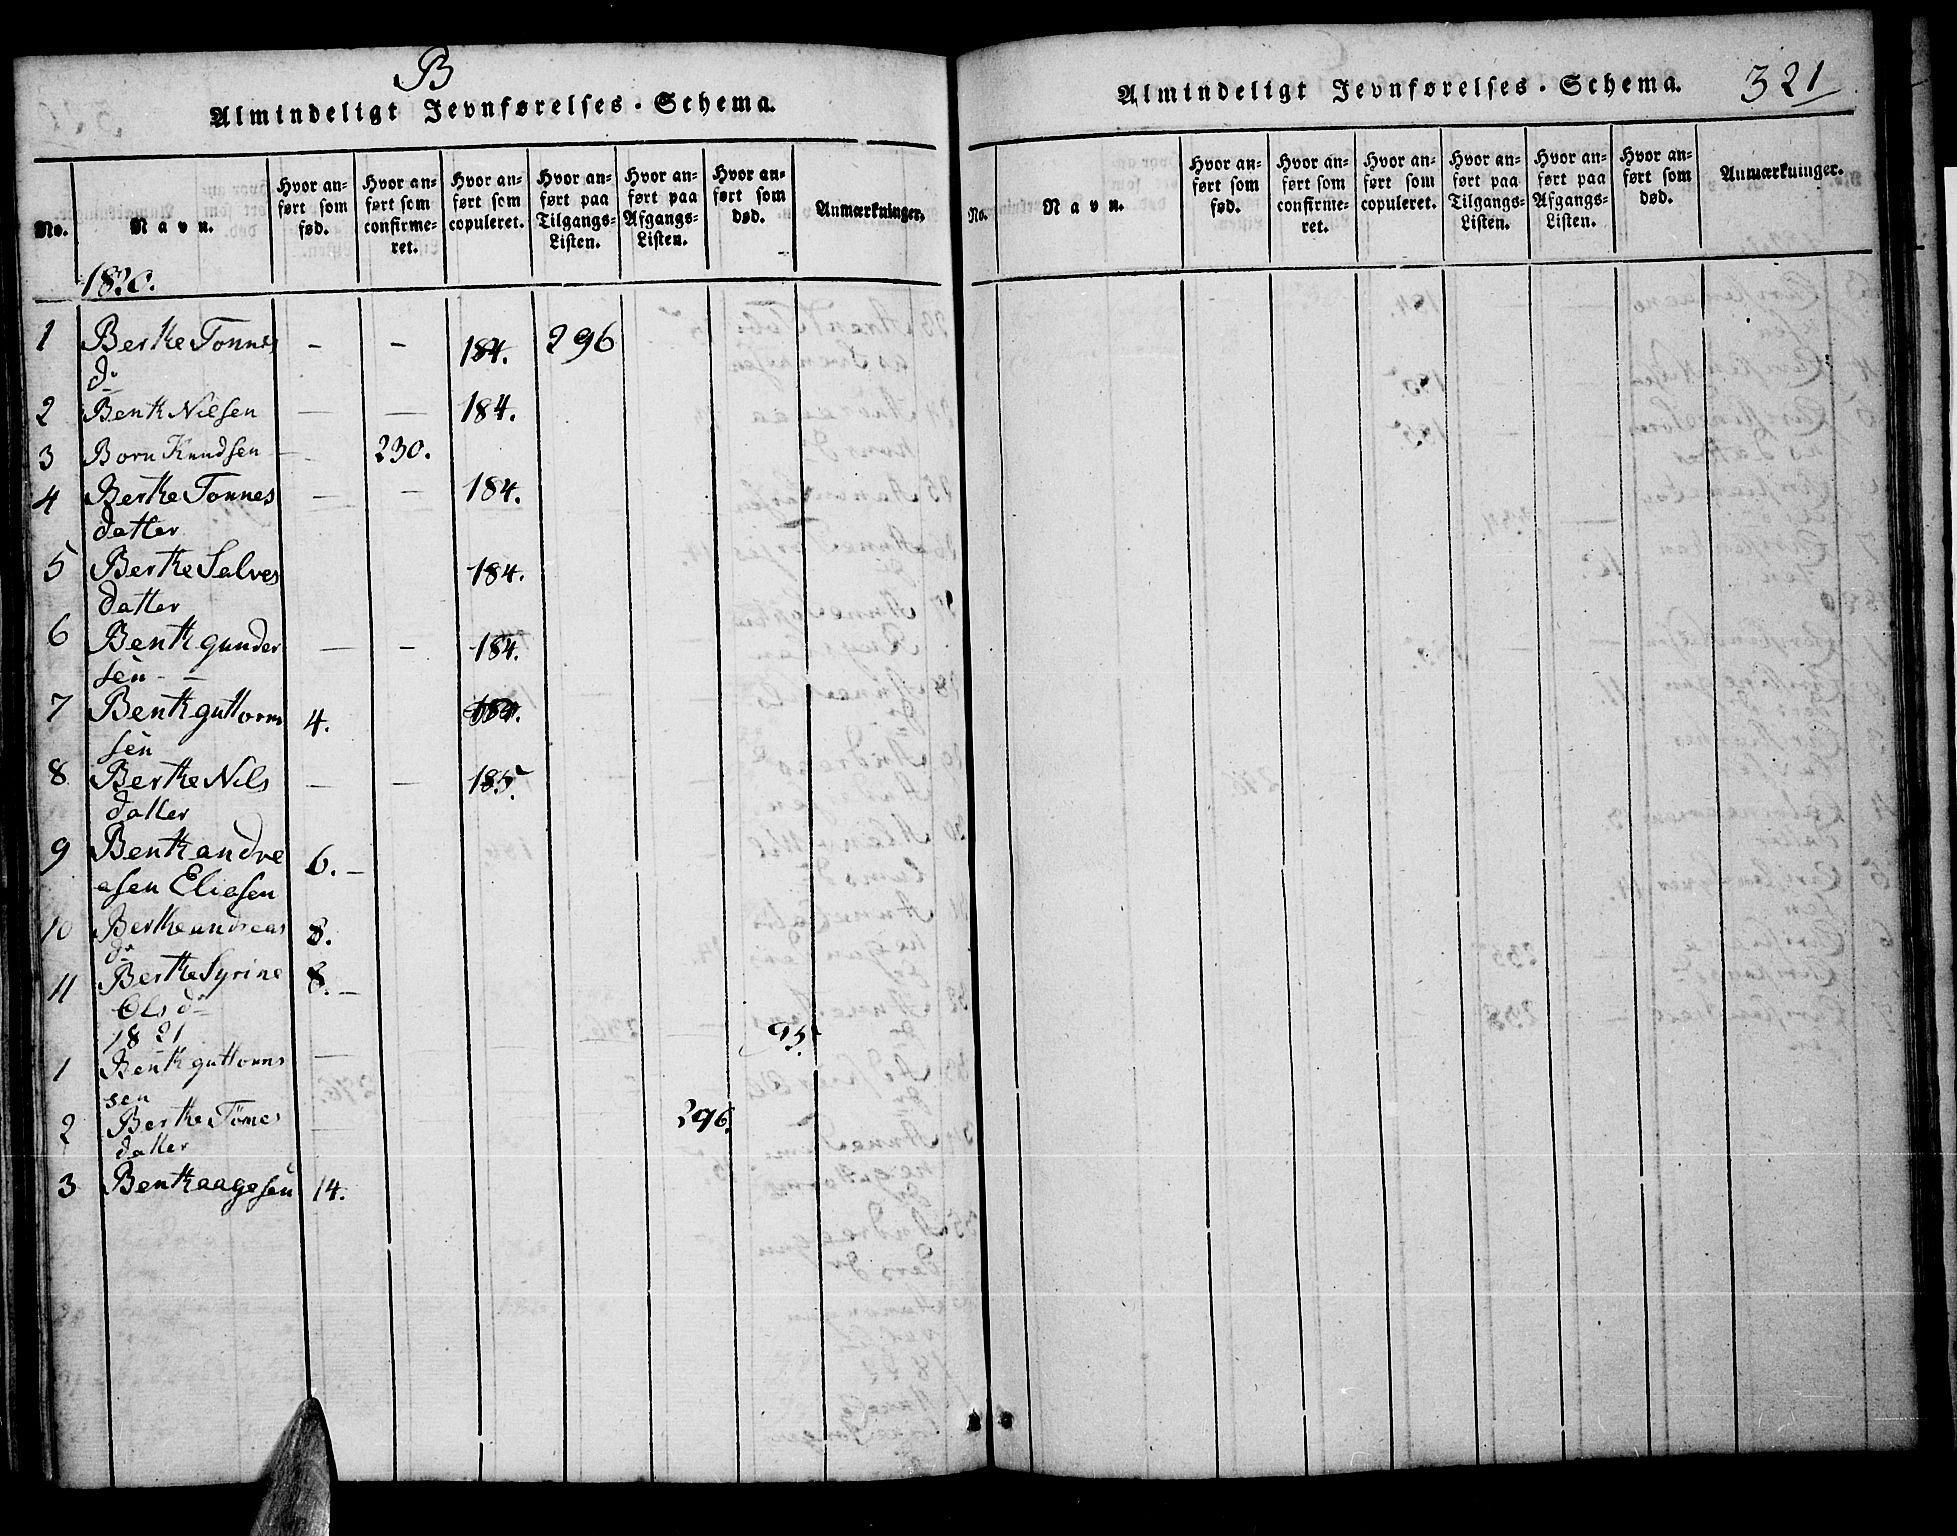 B
Almindeligt Jevnførelses-Schema.
No. Navn. Hvor anført som fød. Hvor anført som confirmeret. Hvor anført som copuleret. Hvor anført paa Tilgangs-Listen. Hvor anført paa Afgangs-Listen. Hvor anført som død. Anmærkninger.
1820.
1 Berthe Tonnes - - 184. 296
dr
2 Bent Nielsen — — 184.
3 Born Knudsen — 230.
4 Berthe Tonnes — — 184.
datter
5 Berthe Salves 184.
datter
6 Bent gunder — - 184.
sen - —
7 Bent guttorm 4. 184.
sen
8 Berthe Nils — — 185.
datter
9 Bent andre 6. —
asen Eliasen
10 Berthe andreas 8.
dr
11 Berthe Syrine 8. —
Ols dr
1821
1 Bent guttorms — 95
sen
2 Berthe Tönnes — 296.
datter
3 Bent aagesen 14.
Almindeligt Jevnførelses-Schema. 321
No. Navn. Hvor anført som fød. Hvor anført som confirmeret. Hvor anført som copuleret. Hvor anført paa Tilgangs-Listen. Hvor anført paa Afgangs-Listen. Hvor anført som død. Anmærkninger.